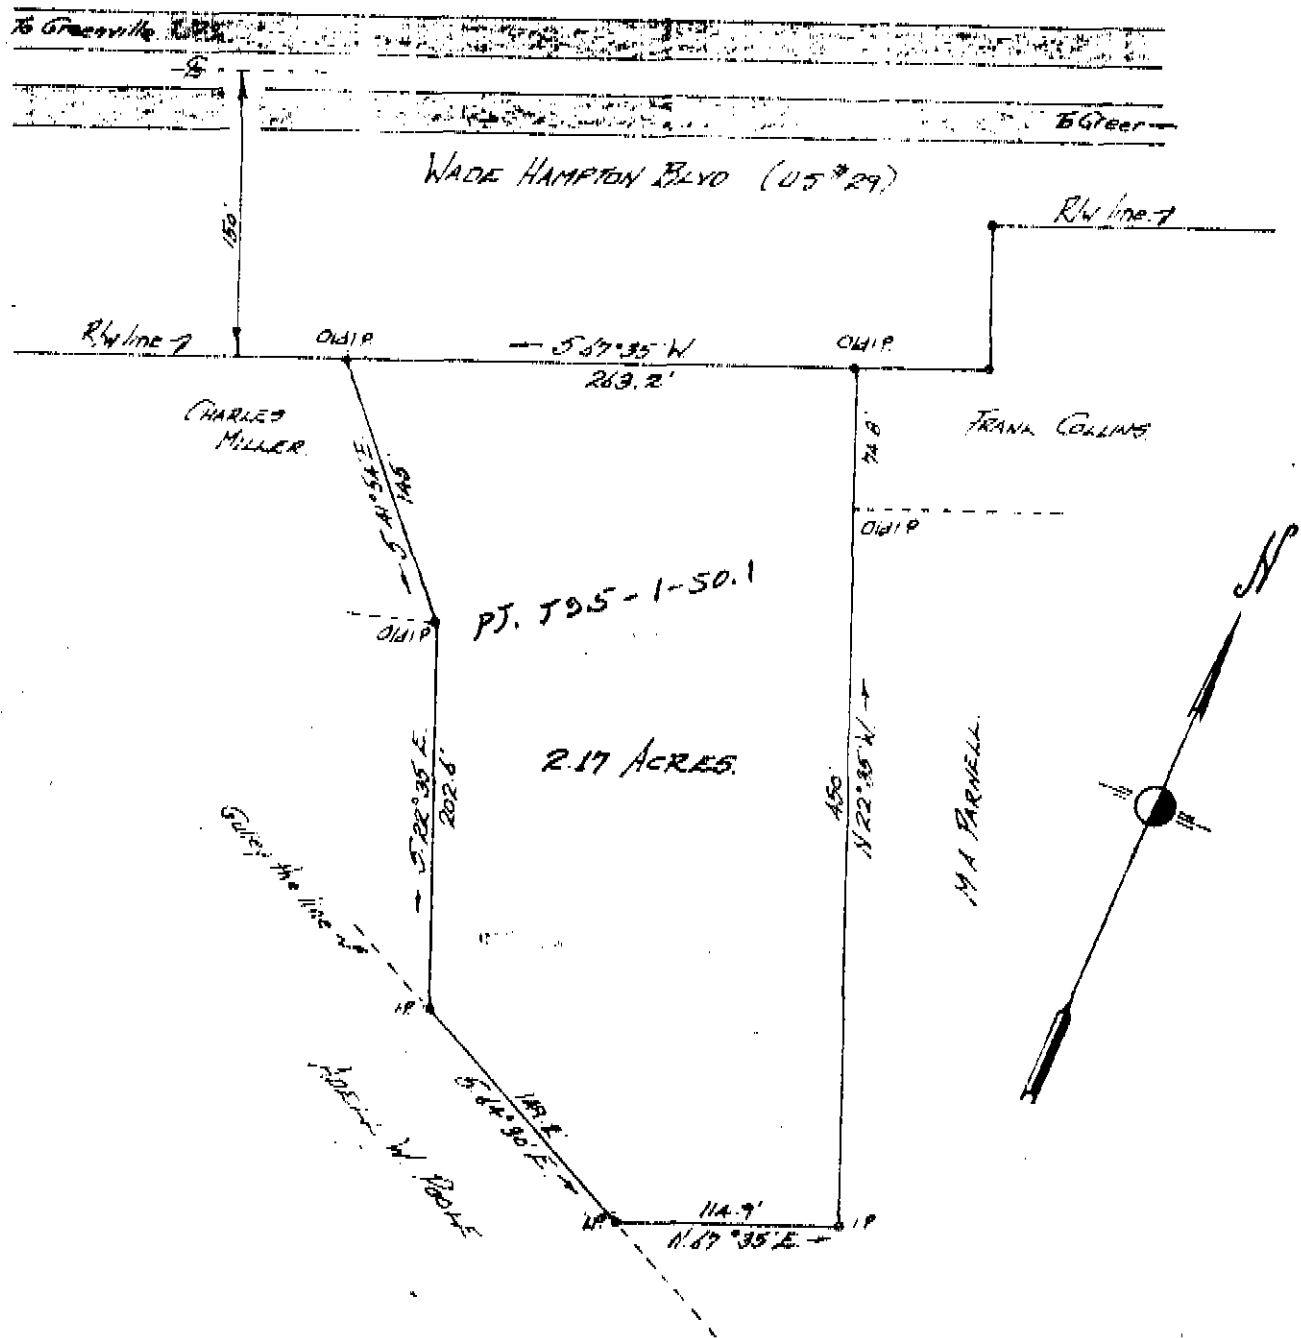 To Greenville
To Greer
WADE HAMPTON BLVD (US #29)
150'
R/W line
R/W line
Old I.P.
S 67°35' W
263.2'
Old I.P.
CHARLES
MILLER
FRANK COLLINS
S 41°54' E
145'
74.8'
Old I.P.
Old I.P.
PT. T35-1-50.1
N
S 22°35' E
202.6'
2.17 ACRES.
450'
N 22°35' W
M A PARNELL
Gulley the line
I.P.
S 64°30' E
W. POOLE
I.P.
114.9'
N 67°35' E
I.P.